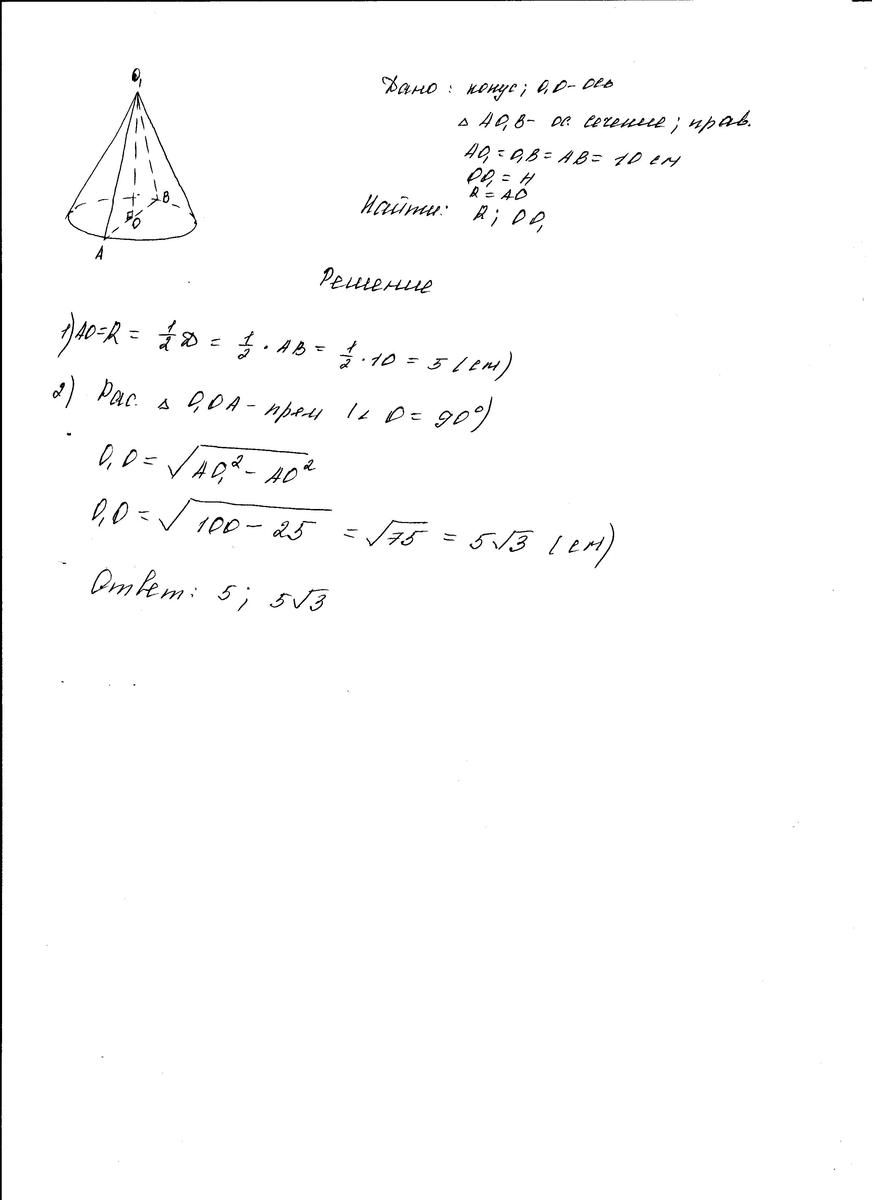 O₁
B
O
A
Дано: конус; O₁O - ось
△ AO₁B - ос. сечение; прав.
AO₁ = O₁B = AB = 10 см
OO₁ = H
R = AO
Найти: R; OO₁
Решение
1) AO = R = 1/2 D = 1/2 · AB = 1/2 · 10 = 5 (см)
2) Рас. △ O₁OA - прям (∠ O = 90°)
O₁O = √(AO₁² - AO²)
O₁O = √(100 - 25) = √75 = 5√3 (см)
Ответ: 5; 5√3